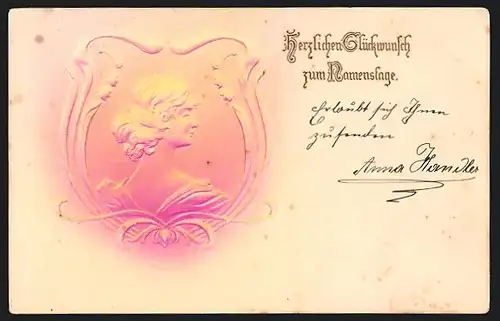 Herzlichen Glückwunsch
zum Namenstage.
Erlaubt sich Ihnen
zusenden
Anna Handler